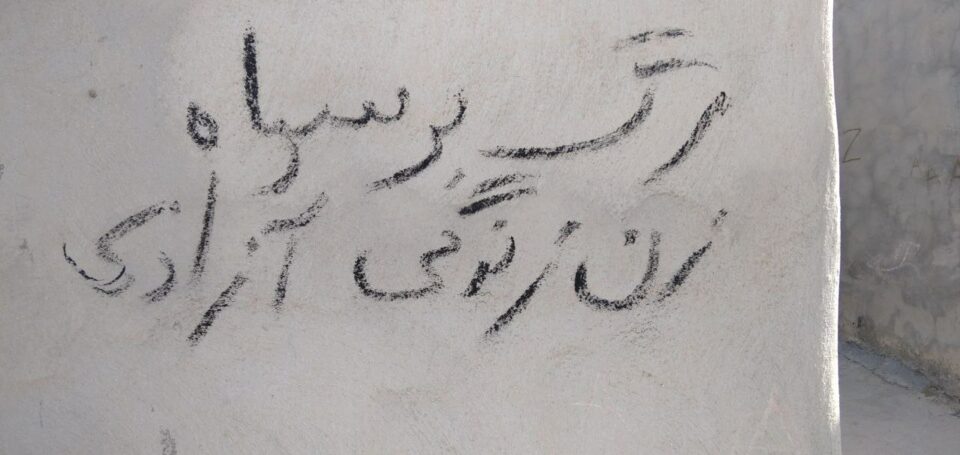 مرگ بر سپاه
زن زندگی آزادی